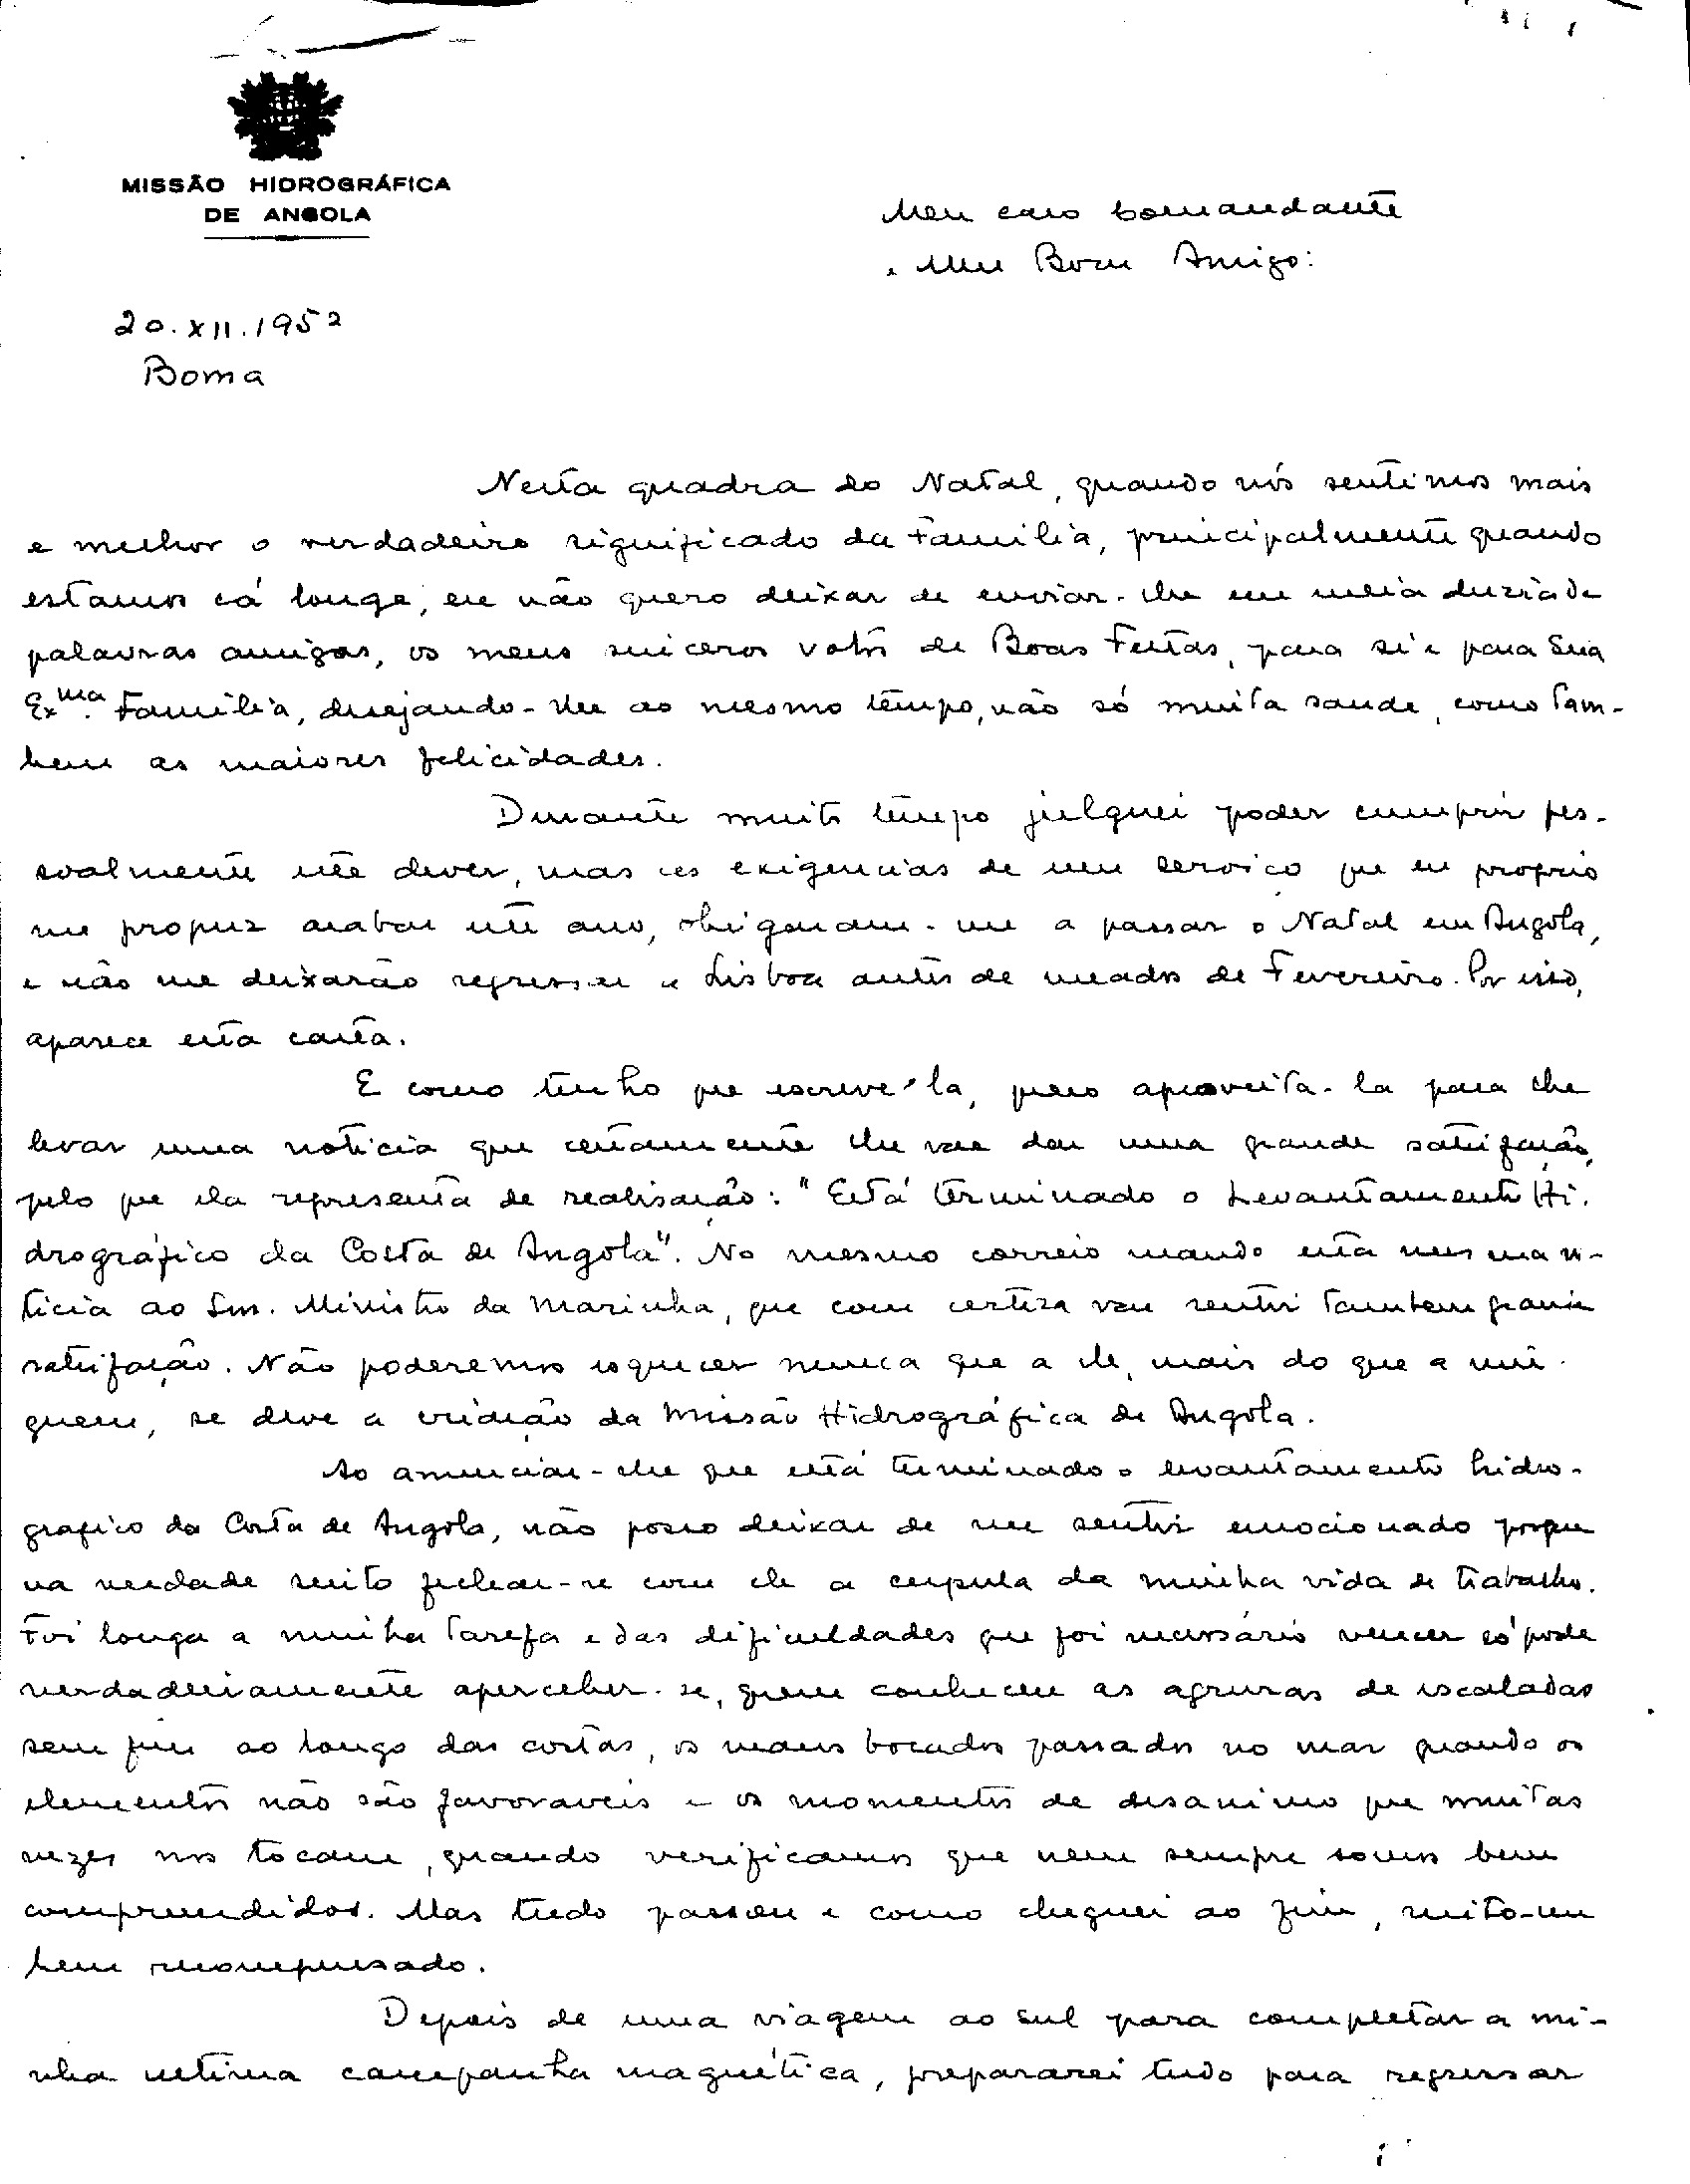 MISSÃO HIDROGRÁFICA
DE ANGOLA
Meu caro Comandante
e Meu Bom Amigo:
20.XII.1952
Boma
Nesta quadra do Natal, quando nós sentimos mais
e melhor o verdadeiro significado da Familia, principalmente quando
estamos cá longe, eu não quero deixar de enviar-lhe em meia duzia de
palavras amigas, os meus sinceros votos de Boas Festas, para si e para Sua
Exma. Familia, desejando-lhe ao mesmo tempo, não só muita saude, como tam-
bem as maiores felicidades.
Durante muito tempo julguei poder cumprir pes-
soalmente este dever, mas as exigencias de um serviço que eu proprio
me propuz acabar este ano, obrigaram-me a passar o Natal em Angola,
e não me deixarão regressar a Lisboa antes de meados de Fevereiro. Por isso,
aparece esta carta.
E como tenho que escreve-la, quero aproveita-la para lhe
levar uma noticia que certamente lhe vae dar uma grande satisfação,
pelo que ela representa de realisação: "Está terminado o Levantamento Hi-
drográfico da Costa de Angola". No mesmo correio mando esta mesma no-
ticia ao Snr. Ministro da Marinha, que com certeza vae sentir tambem grande
satisfação. Não poderemos esquecer nunca que a ele, mais do que a nin-
guem, se deve a criação da Missão Hidrográfica de Angola.
Ao anunciar-lhe que está terminado o levantamento hidro-
grafico da Costa de Angola, não posso deixar de me sentir emocionado porque
na verdade sinto fechar-se com ele a cupula da minha vida de trabalho.
Foi longa a minha tarefa e das dificuldades que foi necessário vencer só pode
verdadeiramente aperceber-se, quem conheceu as agruras de escaladas
sem fim ao longo das costas, os maus bocados passados no mar quando os
elementos não são favoraveis e os momentos de desanimo que muitas
vezes nos tocam, quando verificamos que nem sempre somos bem
compreendidos. Mas tudo passou e como cheguei ao fim, sinto-me
bem recompensado.
Depois de uma viagem ao sul para completar a mi-
nha ultima campanha magnética, prepararei tudo para regressar